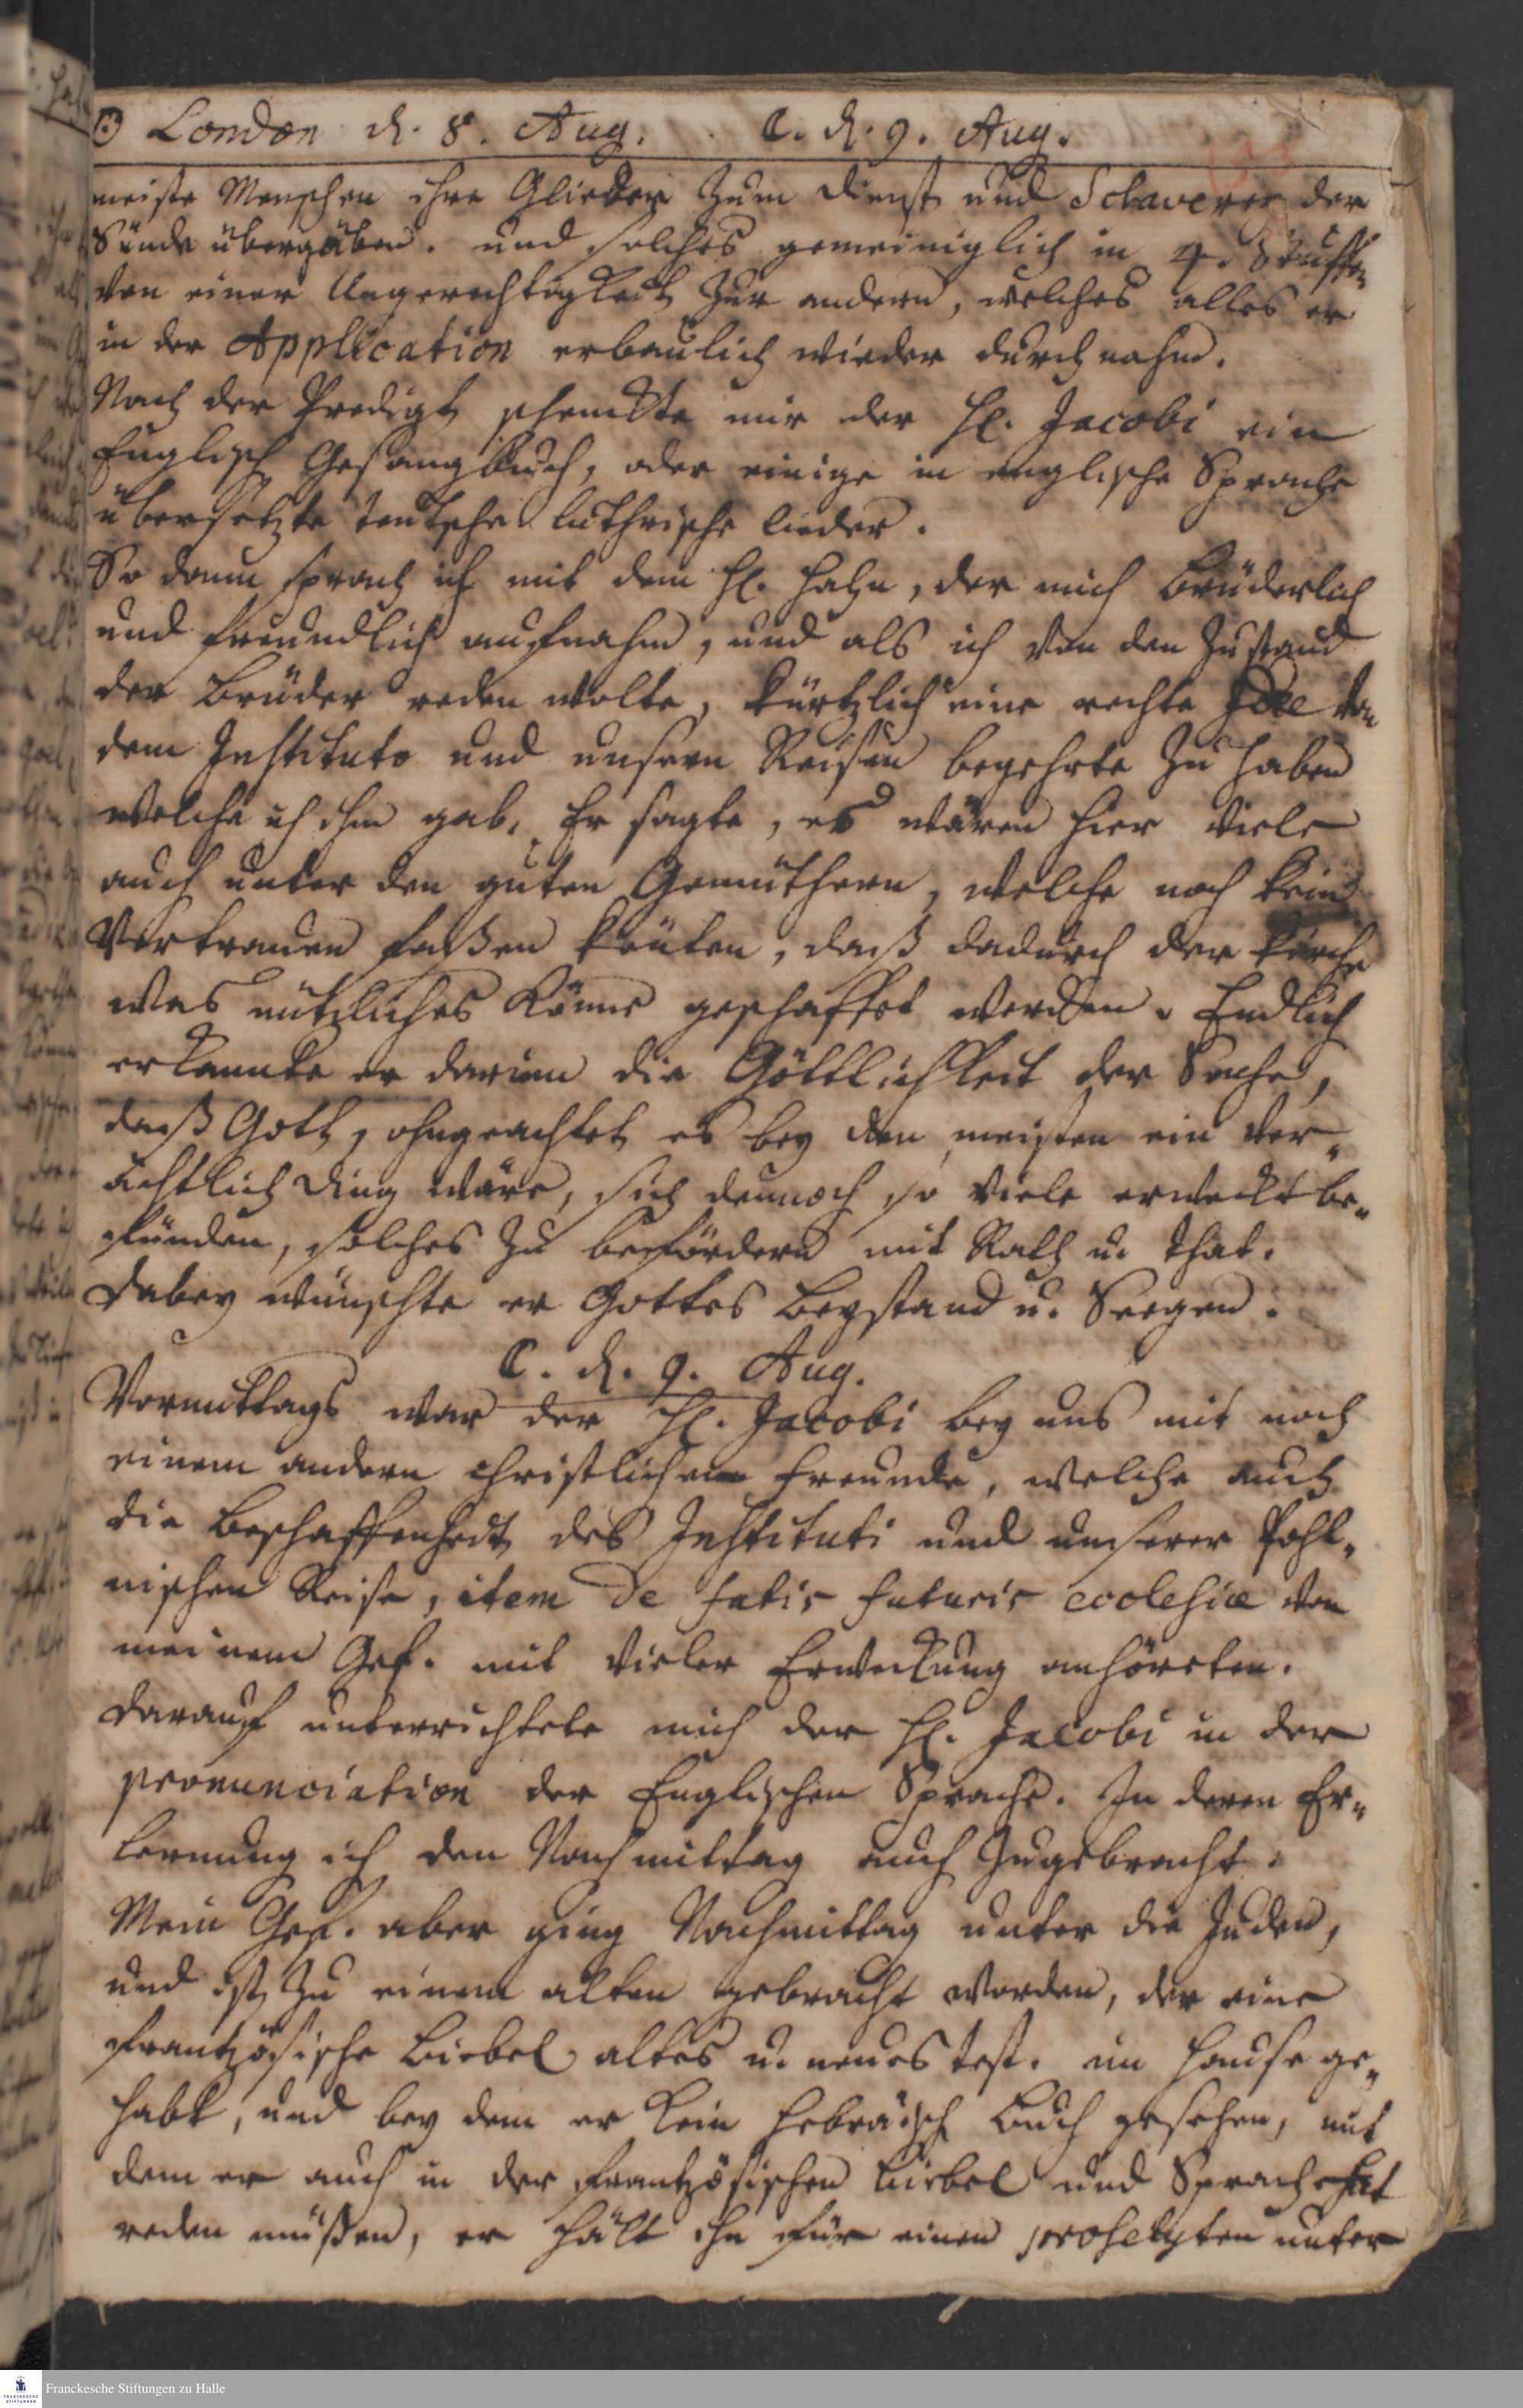 ☉ London d. 8. Aug. ☾. d. 9. Aug.
meiste Menschen ihre Glieder zum dienst und Sclaverey der
Sünde übergäben. und solches gemeiniglich in 4. Stuffen
von einer Ungerechtigkeit zur andern, welches alles er
in der Application erbaulich wieder durchnahm.
Nach der Predigt schenckte mir der H. Jacobi ein
Englisch Gesangbuch, oder einige in englische Sprache
übersetzte teutsche luthrische lieder.
So dann sprach ich mit dem H. Hahn, der mich Brüderlich
und freundlich aufnahm, und als ich von den Zustand
der Brüder reden wolte, kürtzlich eine rechte Idee von
dem Instituto und unsern Reisen begehrte zu haben
welche ich ihm gab. Er sagte, es wären hier viele
auch unter den guten Gemüthern, welche noch kein
Vertrauen faßen könten, daß dadurch der Kirche
was nützliches könne geschaffet werden. Endlich
erkannte er darinn die Göttlichkeit der Sache,
daß Gott, ohngeachtet es bey den meisten ein ver-
ächtlich ding wäre, sich dennoch so viele erweckt be-
fünden, solches zu befördern mit Rath u. that.
Dabey wünschte er Gottes Beystand u. Seegen.
☾. d. 9. Aug.
Vormittags war der H. Jacobi bey uns mit noch
einem andern christlichen freunde, welche auch
die Beschaffenheit des Instituti und unserer Pohl-
nischen Reise, item de fatis futuris ecclesiæ von
meinem Gef. mit vieler Erweckung anhöreten.
Darauf unterrichtete mich der H. Jacobi in der
pronunciation der Englischen Sprache. In deren Er-
lernung ich den Nachmittag auch zugebracht.
Mein Gef. aber ging Nachmittag unter die Juden,
und ist zu einem alten gebracht worden, der eine
frantzösische Biebel altes u. neues test. im Hause ge-
habt, und bey dem er kein Hebräisch Buch gesehen, mit
dem er auch in der frantzösischen Biebel und Sprache hat
reden müßen, er hält ihn für einen proselyten unter
Franckesche Stiftungen zu Halle